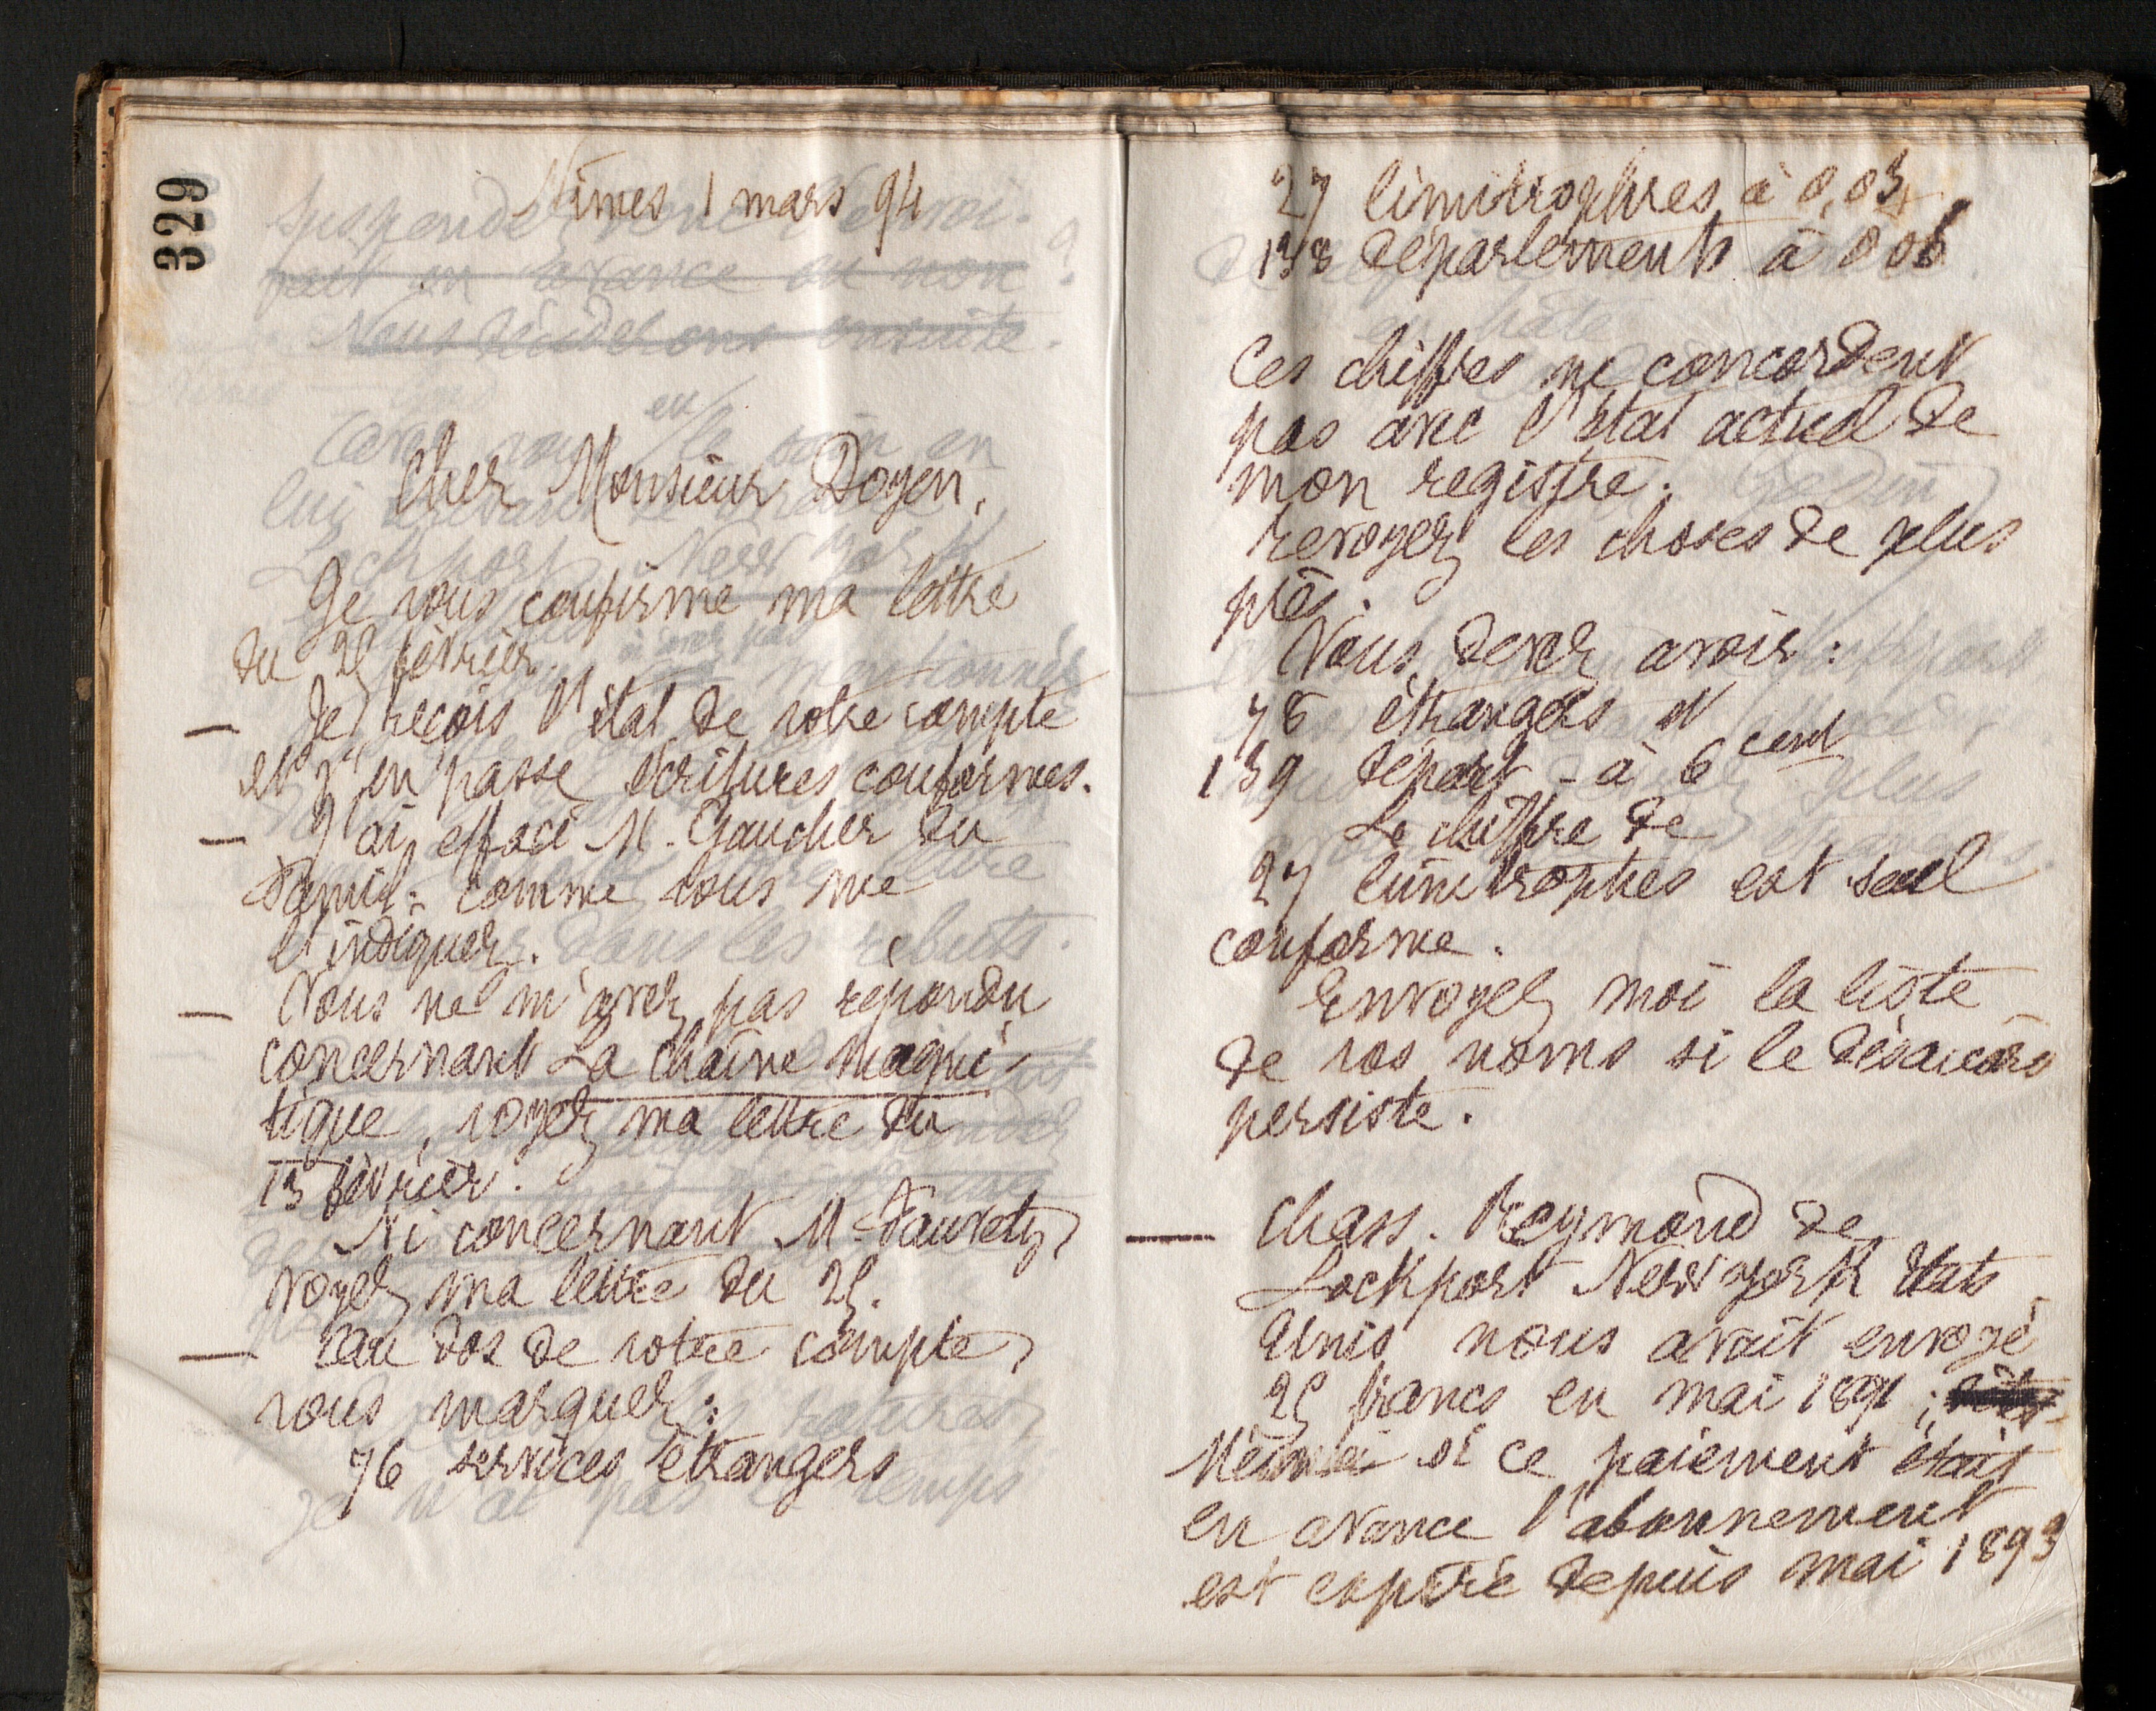 329
Nîmes 1 mars 94
Cher Monsieur Doyen,
Je vous confirme ma lettre
du 25 février.
— Je reçois l'état de votre compte
et j'en passe écritures conformes.
— J'ai effacé M. Gaucher du
Famil: comme vous me
l'indiquez.
— Vous ne m'avez pas répondu
concernant La chaîne magné-
tique, voyez ma lettre du
13 février.
Ni concernant M. Fauvety,
voyez ma lettre du 25.
— au dos de votre compte,
vous marquez:
76 services étrangers
27 limitrophes à 0,03
138 départements à 0 06
Ces chiffres ne concordent
pas avec l'état actuel de
mon registre.
revoyez les choses de plus
près.
Vous devez avoir:
78 étrangers et
139 départ - à 6 cent
Le chiffre de
27 limitrophes est seul
conforme.
Envoyez moi la liste
de vos noms si le désaccord
persiste.
— Chass. Reymond de
Lockport New york Etats
Unis nous avait envoyé
25 francs en mai 1891;
si ce paiement était
en avance l'abonnement
est expiré depuis mai 1893